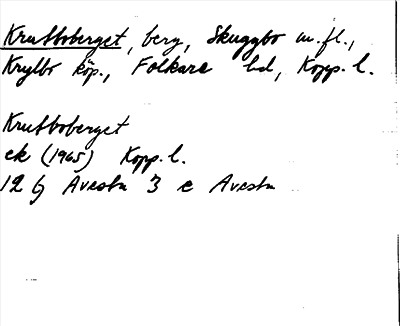 Krutboberget, berg, Skuggbo m.fl.,
Krylbo köp., Folkare hd, Kopp. l.
Krutboberget
ek (1965) Kopp. l.
12 G Avesta 3 c Avesta